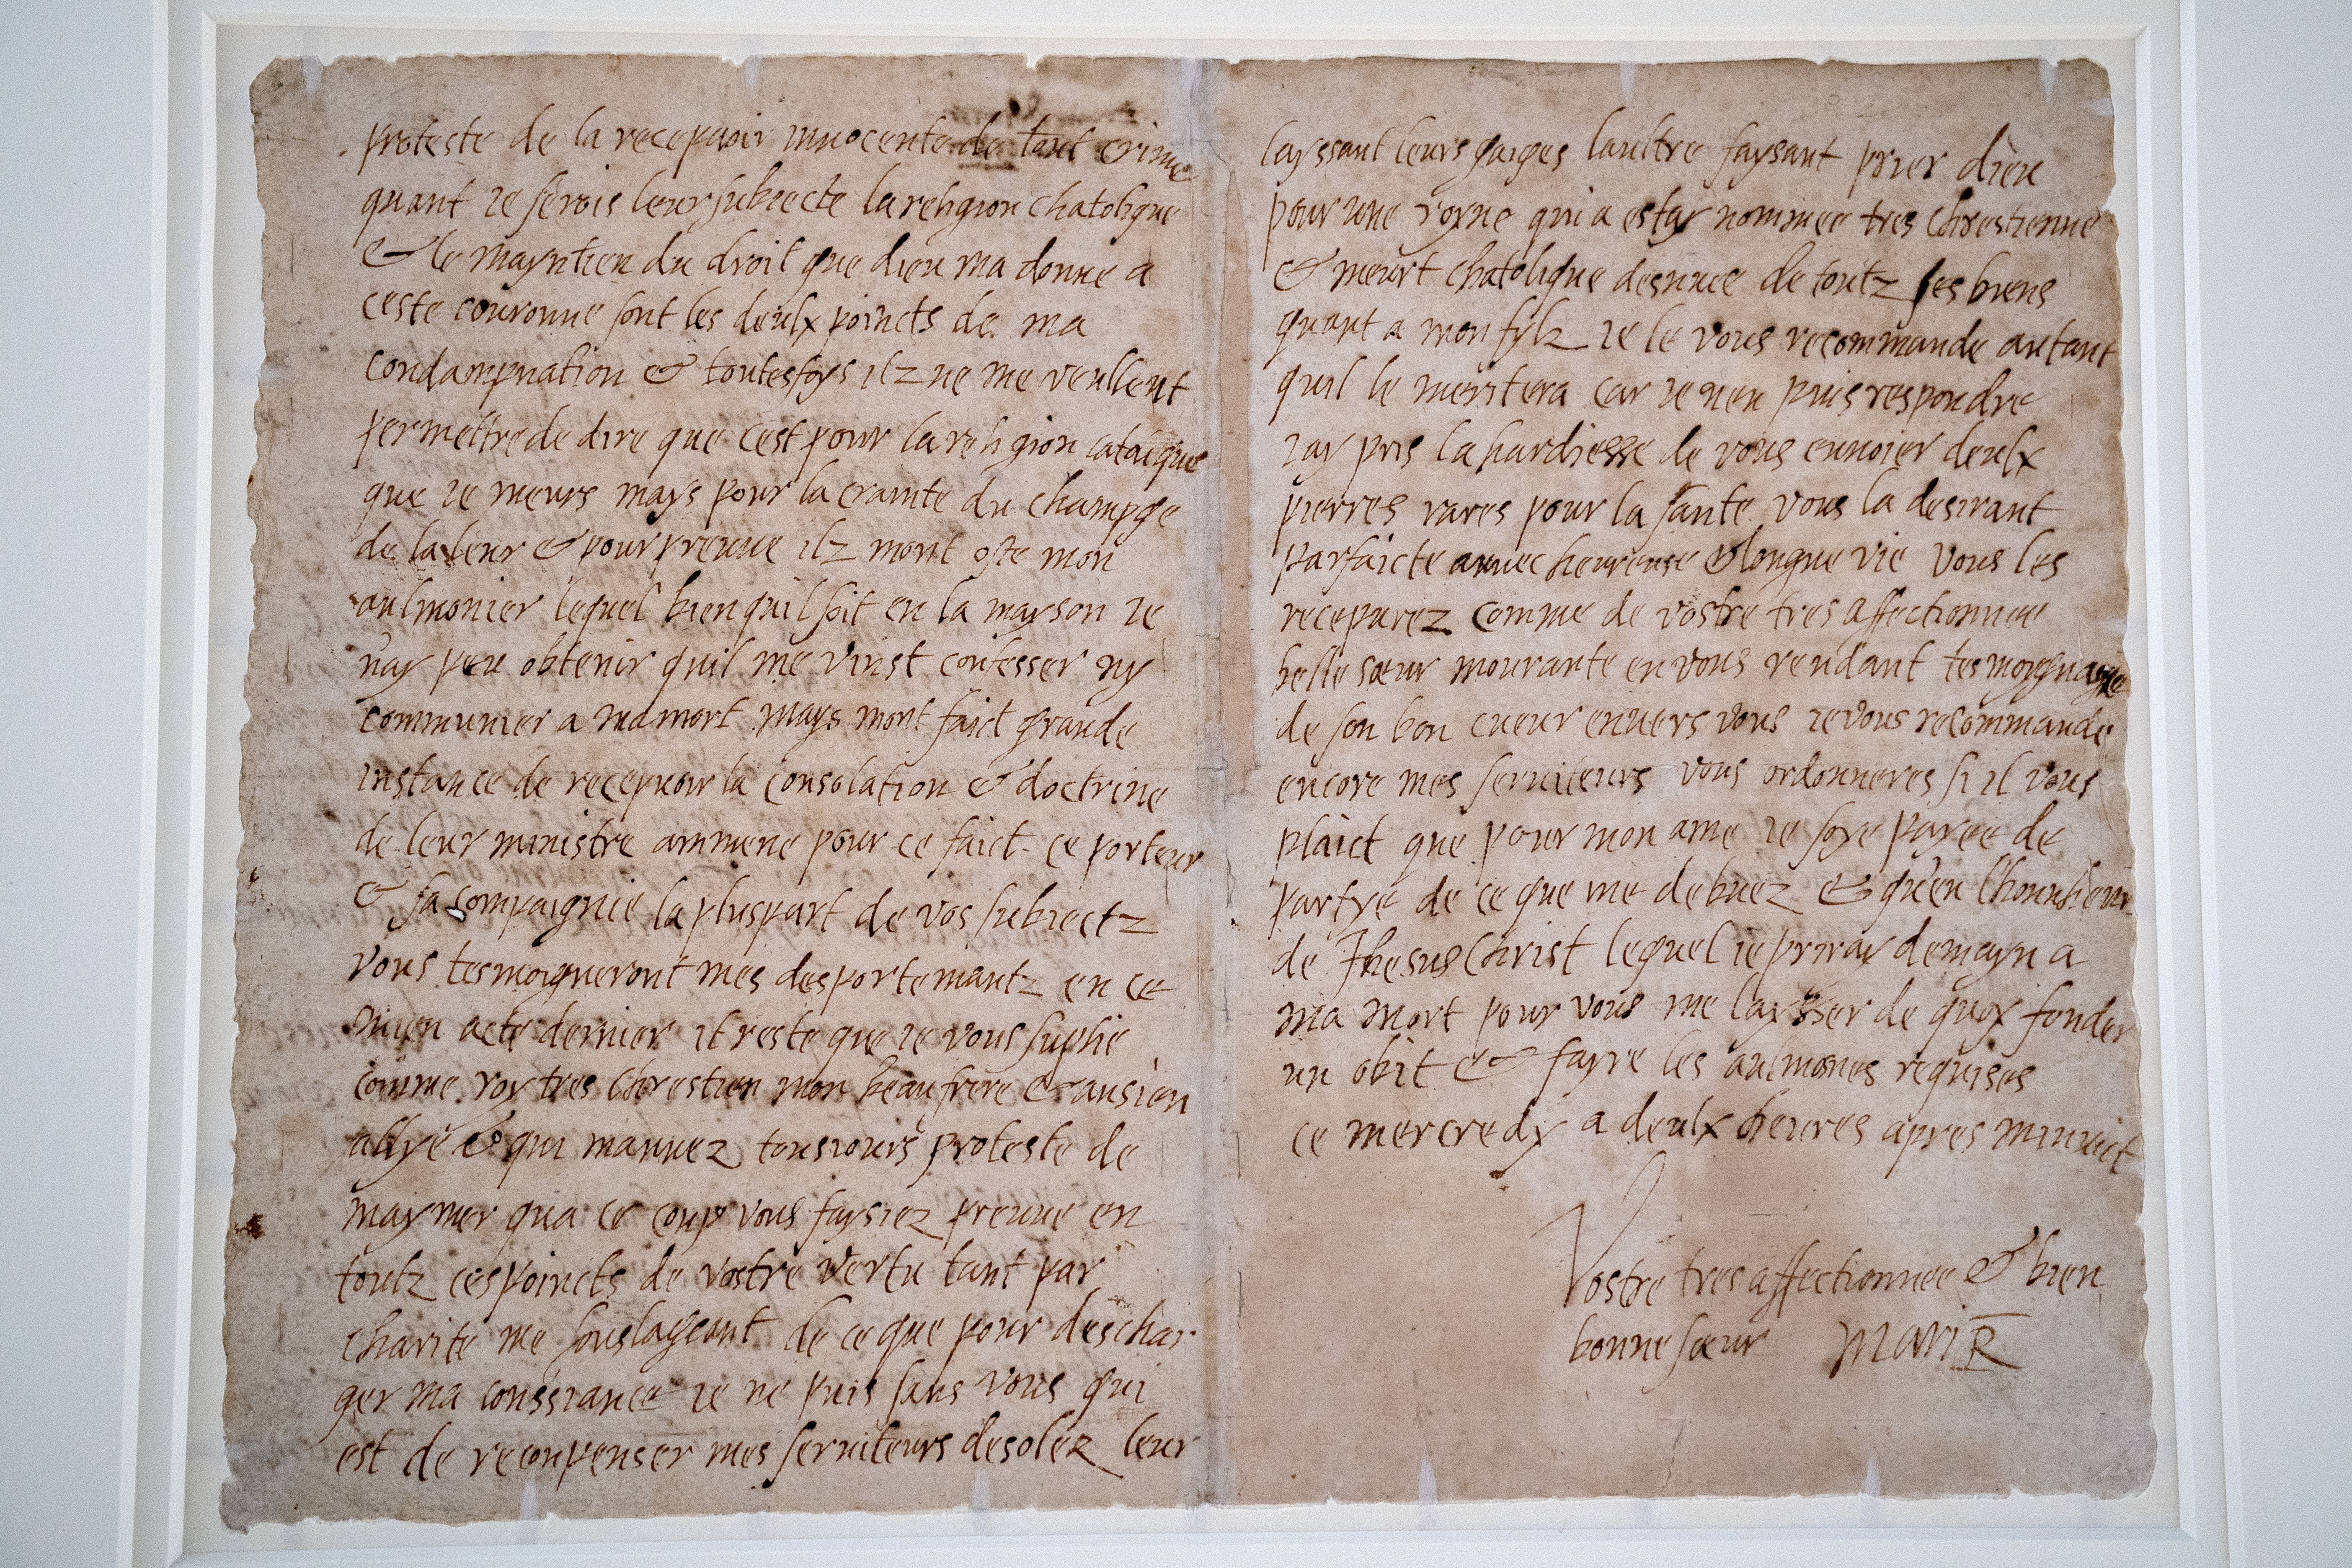 proteste de la recepuoir innocente de tout crime
quant ie serois leur subiecte la religion chatolique
& le mayntien du droit que dieu ma donne a
ceste couronne sont les deulx poincts de ma
condampnation & toutesfoys ilz ne me veullent
permettre de dire que cest pour la religion catolque
que ie meurs mays pour la crainte du champge
de la leur & pour preuue ilz mont oste mon
aulmonier lequel bien quil soit en la mayson ie
nay peu obtenir quil me vinst confesser ny
communier a ma mort mays mont faict grande
instance de recepuoir la consolation & doctrine
de leur ministre ammene pour ce faict ce porteur
& sa compaignie la pluspart de vos subiectz
vous tesmoigneront mes desportemantz en ce
mien acte dernier il reste que ie vous suplie
comme roy tres chrestien mon beau frere & ansien
allye & qui mauuez tousiours proteste de
maymer qua ce coup vous faysiez preuue en
toutz ces poincts de vostre vertu tant par
charite me soulageant de ce que pour deschar
ger ma conssiance ie ne puis sans vous qui
est de reconpenser mes seruiteurs desolez leur
layssant leurs gaiges laultre faysant prier dieu
pour une royne qui a estay nommee tres chrestienne
& meurt chatolique desnuee de toutz ses biens
quant a mon fylz ie le vous recommande autant
quil le meritera car ie nen puis respondre
iay pris la hardiesse de vous enuoier deulx
pierres rares pour la sante vous la desirant
parfaicte auuec heureuse & longue vie vous les
recepurez comme de vostre tres affectionnee
belle sœur mourante en vous rendant tesmoygnage
de son bon cueur enuers vous ie vous recommande
encore mes seruiteurs vous ordonneres si il vous
plaict que pour mon ame ie soye payee de
partye de ce que me debuez & qu'en l'honnheur
de Jhesus Christ lequel ie priray demayn a
ma mort pour vous me laysser de quoy fonder
un obit & fayre les aulmones requises
ce mercredy a deulx heures apres minuict
Vostre tres affectionnee & bien
bonne sœur MariR